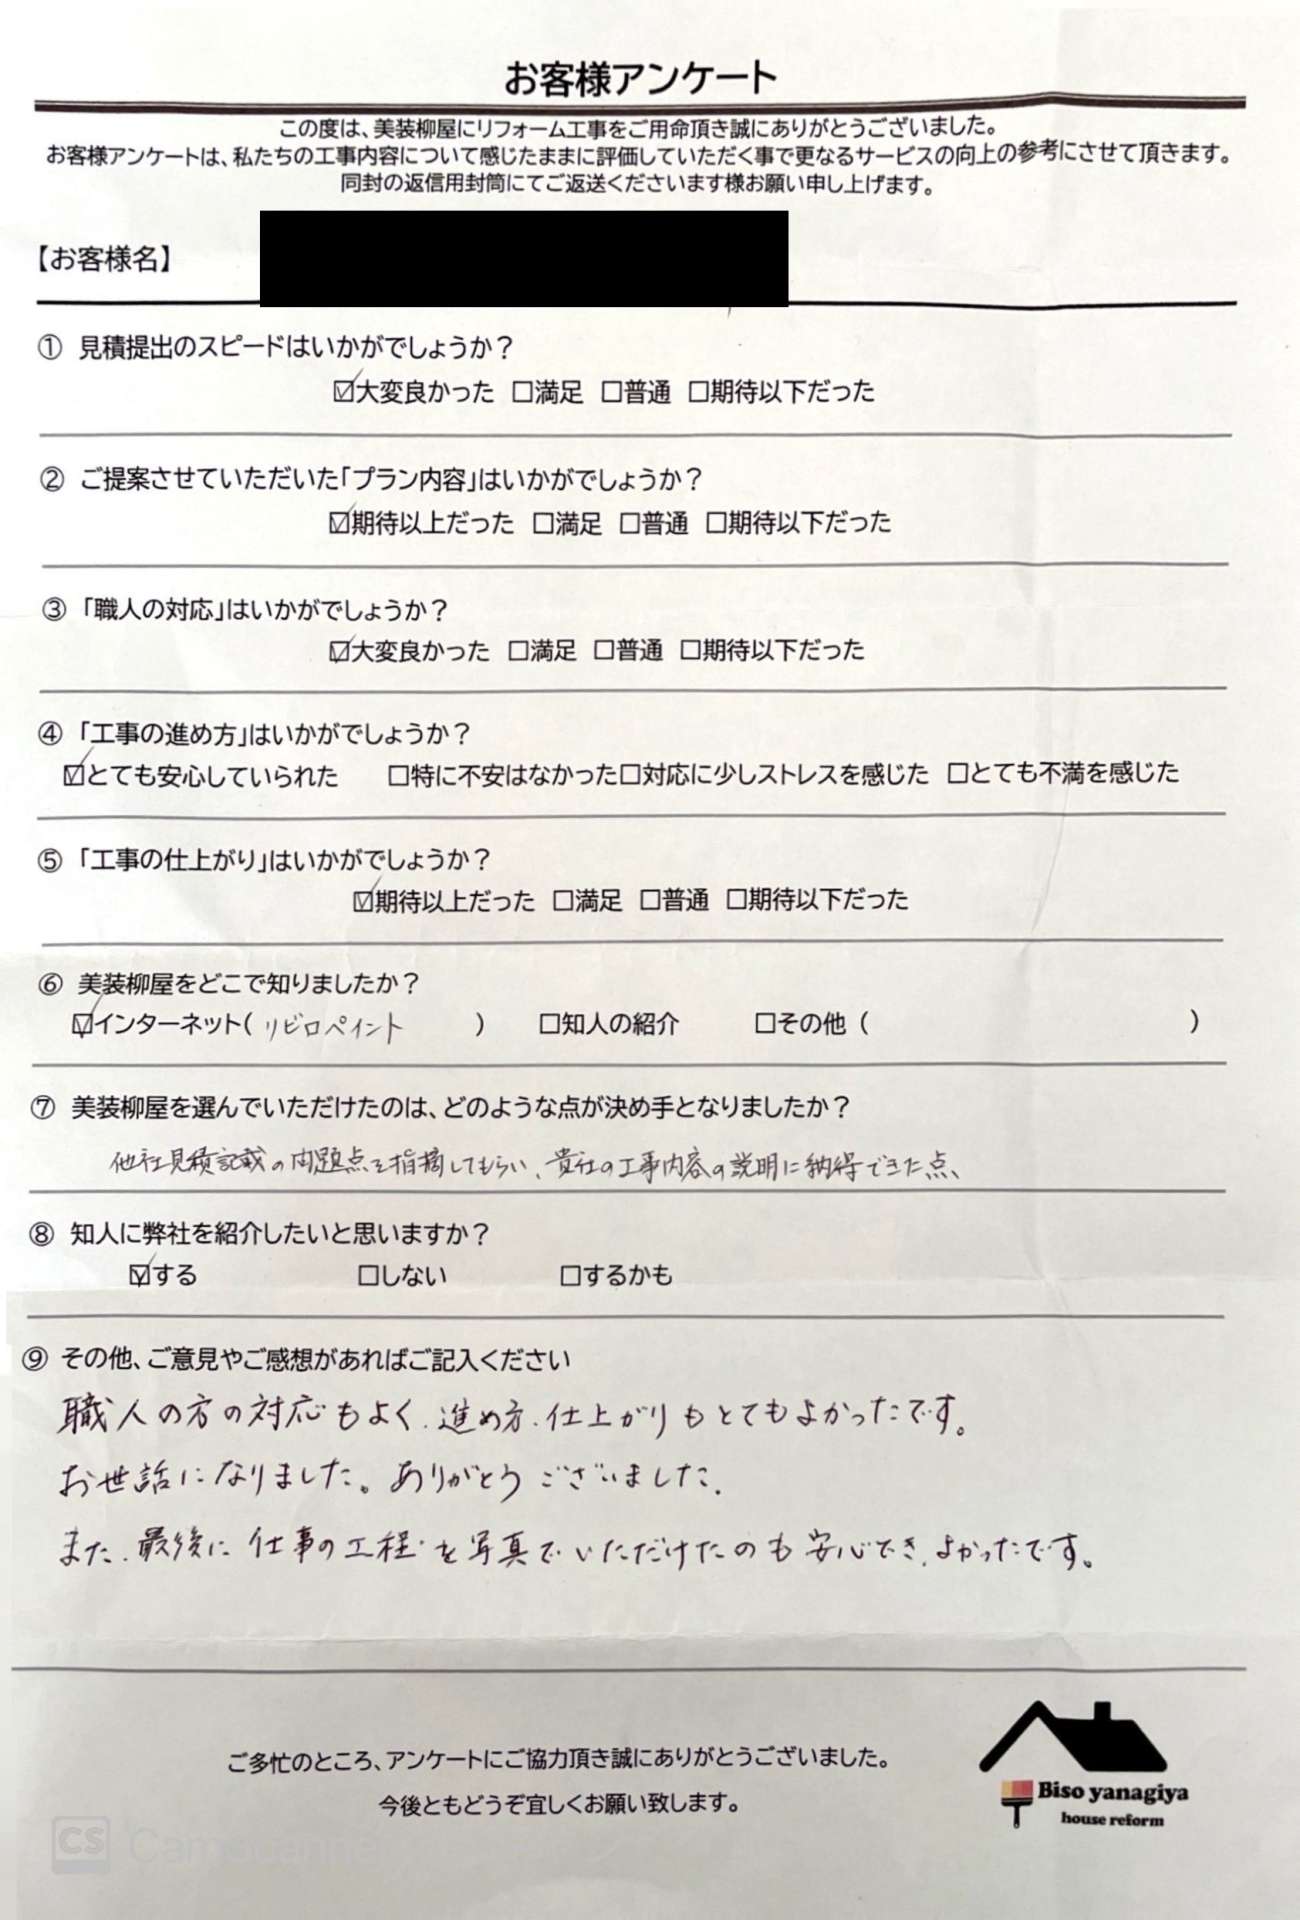 お客様アンケート
この度は、美装柳屋にリフォーム工事をご用命頂き誠にありがとうございました。
お客様アンケートは、私たちの工事内容について感じたままに評価していただく事で更なるサービスの向上の参考にさせて頂きます。
同封の返信用封筒にてご返送くださいます様お願い申し上げます。
【お客様名】
① 見積提出のスピードはいかがでしょうか？
☑大変良かった □満足 □普通 □期待以下だった
② ご提案させていただいた「プラン内容」はいかがでしょうか？
☑期待以上だった □満足 □普通 □期待以下だった
③ 「職人の対応」はいかがでしょうか？
☑大変良かった □満足 □普通 □期待以下だった
④ 「工事の進め方」はいかがでしょうか？
☑とても安心していられた □特に不安はなかった□対応に少しストレスを感じた □とても不満を感じた
⑤ 「工事の仕上がり」はいかがでしょうか？
☑期待以上だった □満足 □普通 □期待以下だった
⑥ 美装柳屋をどこで知りましたか？
☑インターネット( リビロペイント ) □知人の紹介 □その他 ( )
⑦ 美装柳屋を選んでいただけたのは、どのような点が決め手となりましたか？
他社見積記載の問題点を指摘してもらい、貴社の工事内容の説明に納得できた点、
⑧ 知人に弊社を紹介したいと思いますか？
☑する □しない □するかも
⑨ その他、ご意見やご感想があればご記入ください
職人の方の対応もよく、進め方、仕上がりもとてもよかったです。
お世話になりました。ありがとうございました.
また、最後に仕事の工程を写真でいただけたのも安心でき、よかったです。
ご多忙のところ、アンケートにご協力頂き誠にありがとうございました。
今後ともどうぞ宜しくお願い致します。
Biso yanagiya
house reform
CS CamScanner